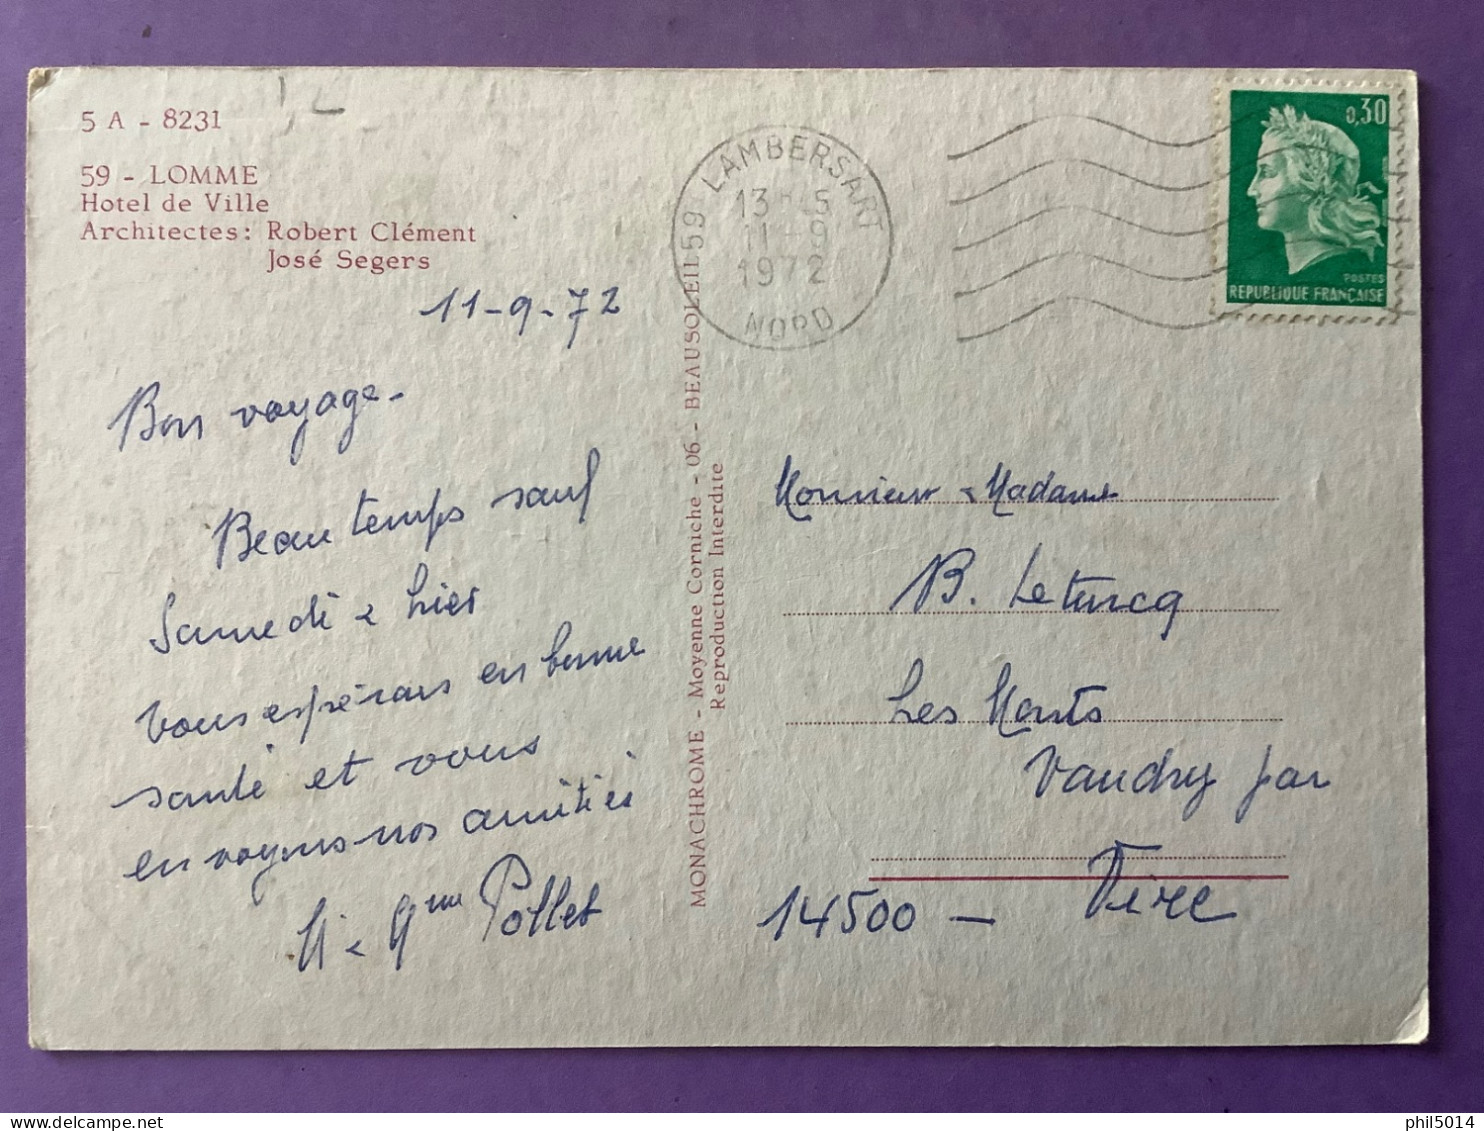 5 A - 8231
59 - LOMME
Hotel de Ville
Architectes: Robert Clément
José Segers
11-9-72
Bon voyage-
Beau temps sauf
Samedi & hier
Vous espérons en bonne
santé et vous
envoyons nos amitiés
M & Mme Pollet
MONACHROME - Moyenne Corniche - 06 - BEAUSOLEIL
Reproduction Interdite
59 LAMBERSART
13 H 5
11 - 9
1972
NORD
0,30
POSTES
REPUBLIQUE FRANÇAISE
Monsieur & Madame
B. Leturcq
Les Monts
Vaudry par
14500 - Vire
phil5014